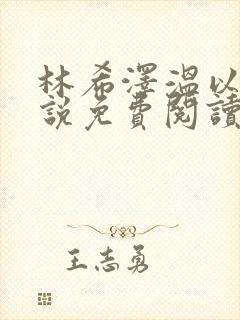 林希澤溫以
說免費閱讀
王志勇